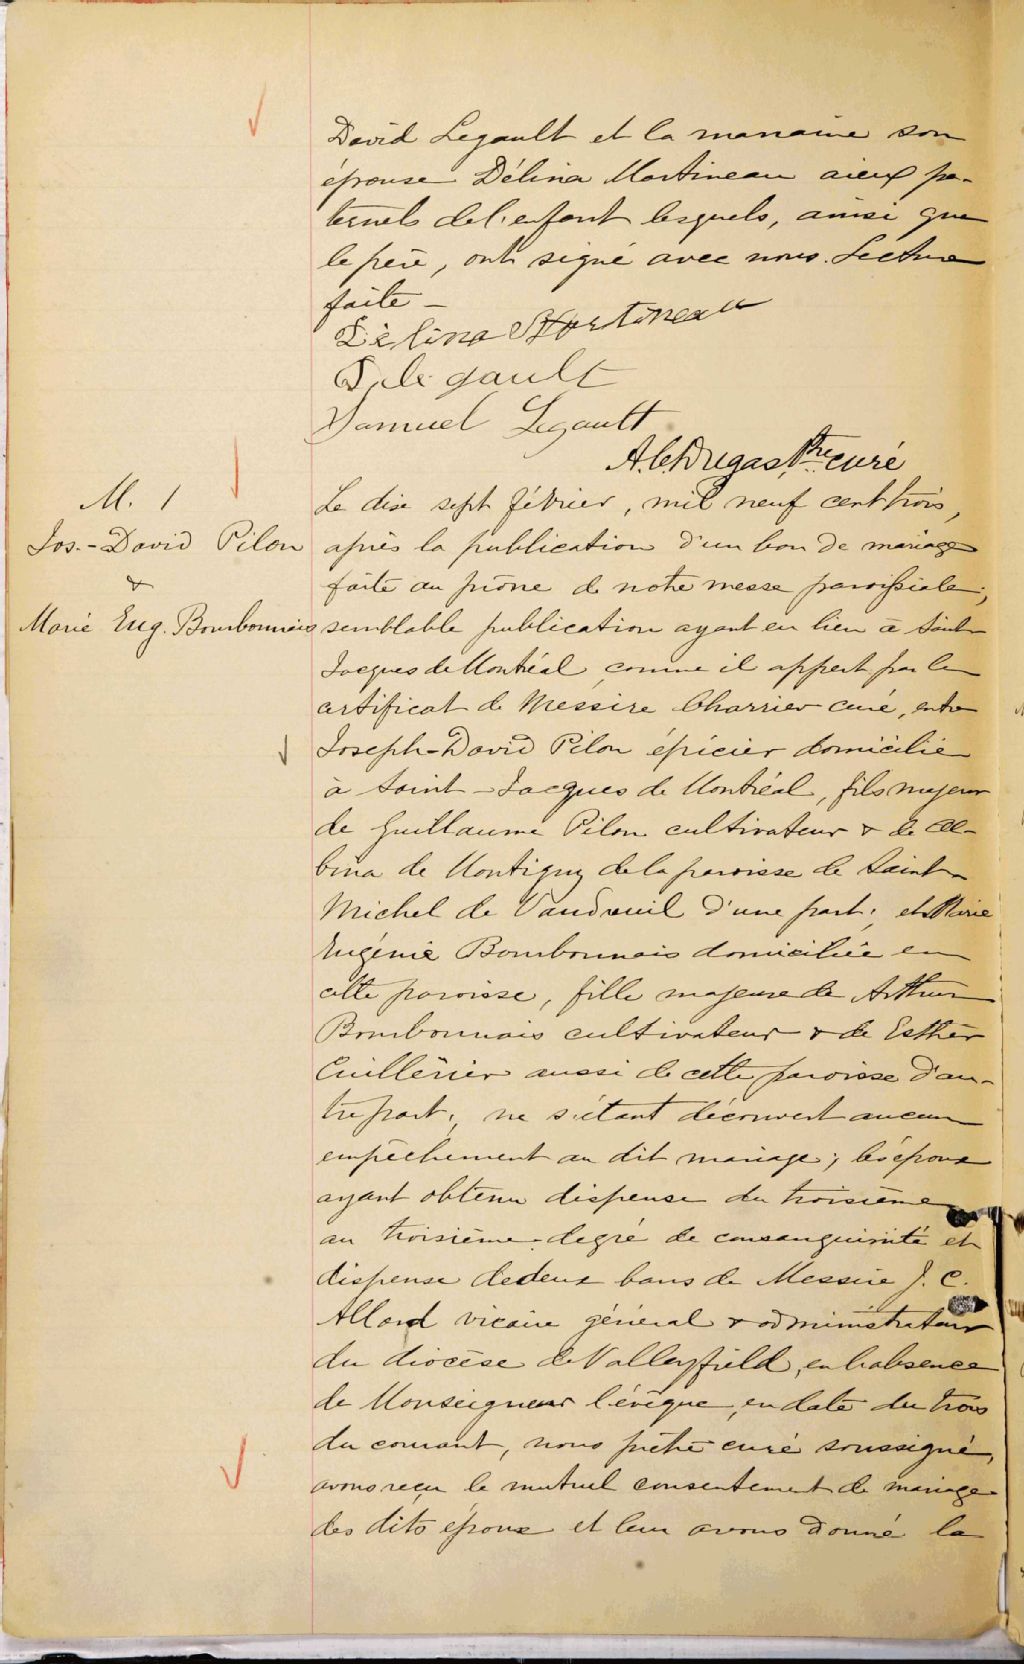 David Legault et la marraine son
épouse Délina Martineau aieux pa-
ternels de l'enfant lesquels, ainsi que
le père, ont signé avec nous. Lecture
faite -
Délina Martineau
D. Legault
Samuel Legault
A. C. Dugas, Ptre curé
M. 1
Jos.-David Pilon
&
Marie Eug. Bourbonnais
Le dix sept février, mil neuf cent trois,
après la publication d'un ban de mariage
faite au prône de notre messe paroissiale;
semblable publication ayant eu lieu à Saint
Jacques de Montréal, comme il appert par le
certificat de Messire Charrier curé, entre
Joseph-David Pilon épicier domicilié
à Saint-Jacques de Montréal, fils majeur
de Guillaume Pilon cultivateur & de Al-
bina de Montigny de la paroisse de Saint-
Michel de Vaudreuil d'une part; et Marie
Eugénie Bourbonnais domiciliée en
cette paroisse, fille majeure de Arthur
Bourbonnais cultivateur & de Esther
Cuillérier aussi de cette paroisse d'au-
tre part; ne s'étant découvert aucun
empêchement au dit mariage; les époux
ayant obtenu dispense du troisième
au troisième degré de consanguinité et
dispense de deux bans de Messire J. C.
Allard vicaire général & administrateur
du diocèse de Valleyfield, en l'absence
de Monseigneur l'évêque, en date du trois
du courant, nous prêtre curé soussigné,
avons reçu le mutuel consentement de mariage
des dits époux et leur avons donné la